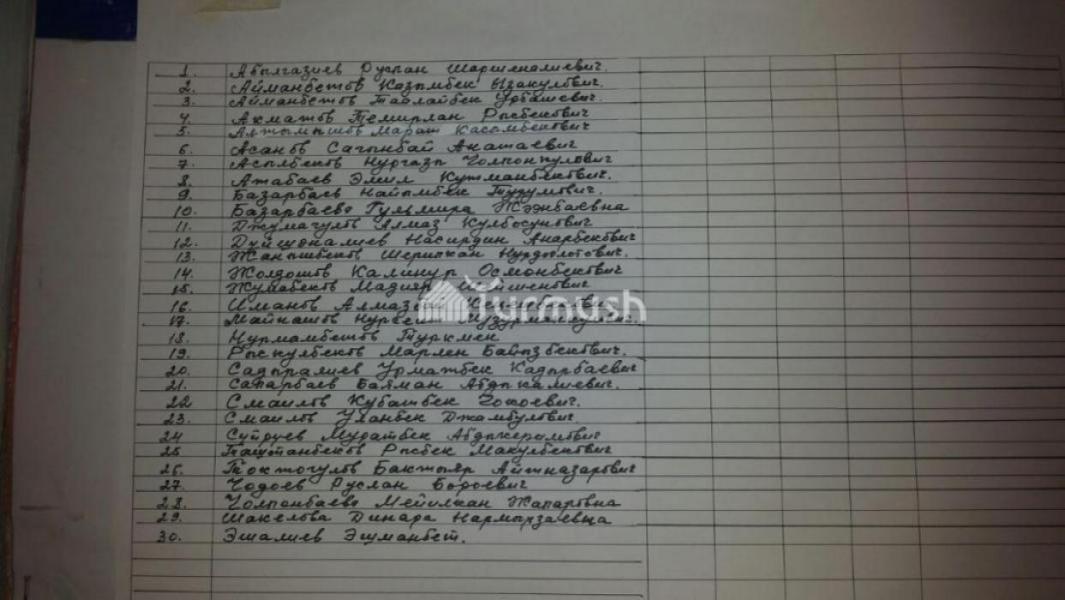 1. Абылгазиев Руслан Шаршеналиевич.
2. Айманбетов Казыбек Ызакулович.
3. Айманбетов Таалайбек
4. Акматов Темирлан Рысбекович
5. Алтымышов Марат Касымбекович
6. Асанов Сагынбай Анатаевич
7. Асылбеков Нургазы Чолпонкулович
8. Атабаев Эмил Кутманбекович.
9. Базарбаев
10. Базарбаева Гульмира Жээнбаевна
11. Джумагулов Алмаз Кулбосунович
12. Дуйшоналиев Насирдин Анарбекович
13. Жанышбеков Шерипжан
14. Жолдошов Калинур Осмонбекович
15. Жумабеков
16. Иманов
17. Майнашов
18. Нурмамбетов Туркмен
19. Рыскулбеков Марлен Байызбекович.
20. Садыралиев Урматбек Кадырбаевич
21. Сапарбаев Баяман Абдыкалиевич.
22 Смаилов Кубатбек
23. Смаилов Уланбек Джамбулович.
24 Муратбек Абдыкеримович
25 Рысбек Макулбекович
26. Токтогулов Бактыяр Айтназарович
27. Чодоев Руслан Бороевич
28. Чолпонбаева Мейилкан Жапаровна
29. Шакелова Динара Нармырзаевна
30. Эшалиев Эшманбет.
Turmush